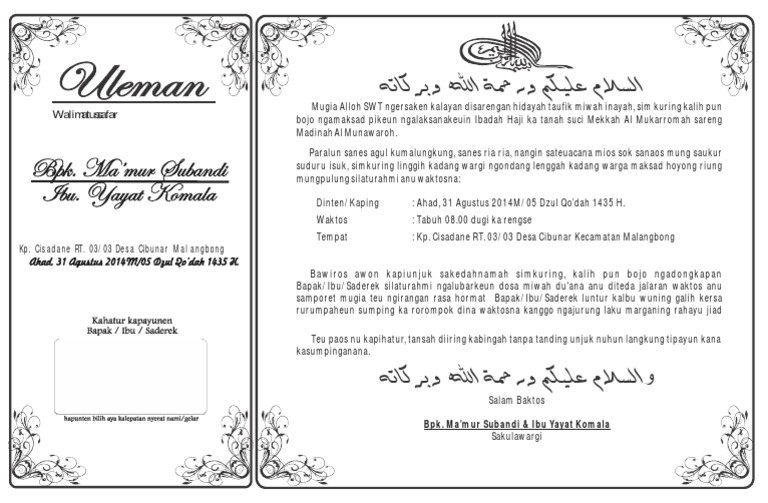 Uleman
Walimatussafar
Bpk. Ma'mur Subandi
Ibu. Yayat Komala
Kp. Cisadane RT. 03/ 03 Desa Cibunar Malangbong
Ahad. 31 Agustus 2014M/05 Dzul Qo'dah 1435 H.
Kahatur kapayunen
Bapak / Ibu / Saderek
hapunten bilih aya kalepatan nyerat nami/gelar
السلام عليكم ورحمة الله وبركاته
Mugia Alloh SWT ngersaken kalayan disarengan hidayah taufik miwah inayah, sim kuring kalih pun
bojo ngamaksad pikeun ngalaksanakeuin Ibadah Haji ka tanah suci Mekkah Al Mukarromah sareng
Madinah Al Munawaroh.
Paralun sanes agul kumalungkung, sanes ria ria, nangin sateuacana mios sok sanaos mung saukur
suduru isuk, simkuring linggih kadang wargi ngondang lenggah kadang warga maksad hoyong riung
mungpulung silaturahmi anu waktosna:
Dinten/ Kaping : Ahad, 31 Agustus 2014M/ 05 Dzul Qo'dah 1435 H.
Waktos : Tabuh 08.00 dugi ka rengse
Tempat : Kp. Cisadane RT. 03/ 03 Desa Cibunar Kecamatan Malangbong
Bawiros awon kapiunjuk sakedahnamah simkuring, kalih pun bojo ngadongkapan
Bapak/ Ibu/ Saderek silaturahmi ngalubarkeun dosa miwah du'ana anu diteda jalaran waktos anu
samporet mugia teu ngirangan rasa hormat Bapak/ Ibu/ Saderek luntur kalbu wuning galih kersa
rurumpaheun sumping ka rorompok dina waktosna kanggo ngajurung laku marganing rahayu jiad
Teu paos nu kapihatur, tansah diiring kabingah tanpa tanding unjuk nuhun langkung tipayun kana
kasumpinganana.
والسلام عليكم ورحمة الله وبركاته
Salam Baktos
Bpk. Ma'mur Subandi & Ibu Yayat Komala
Sakulawargi